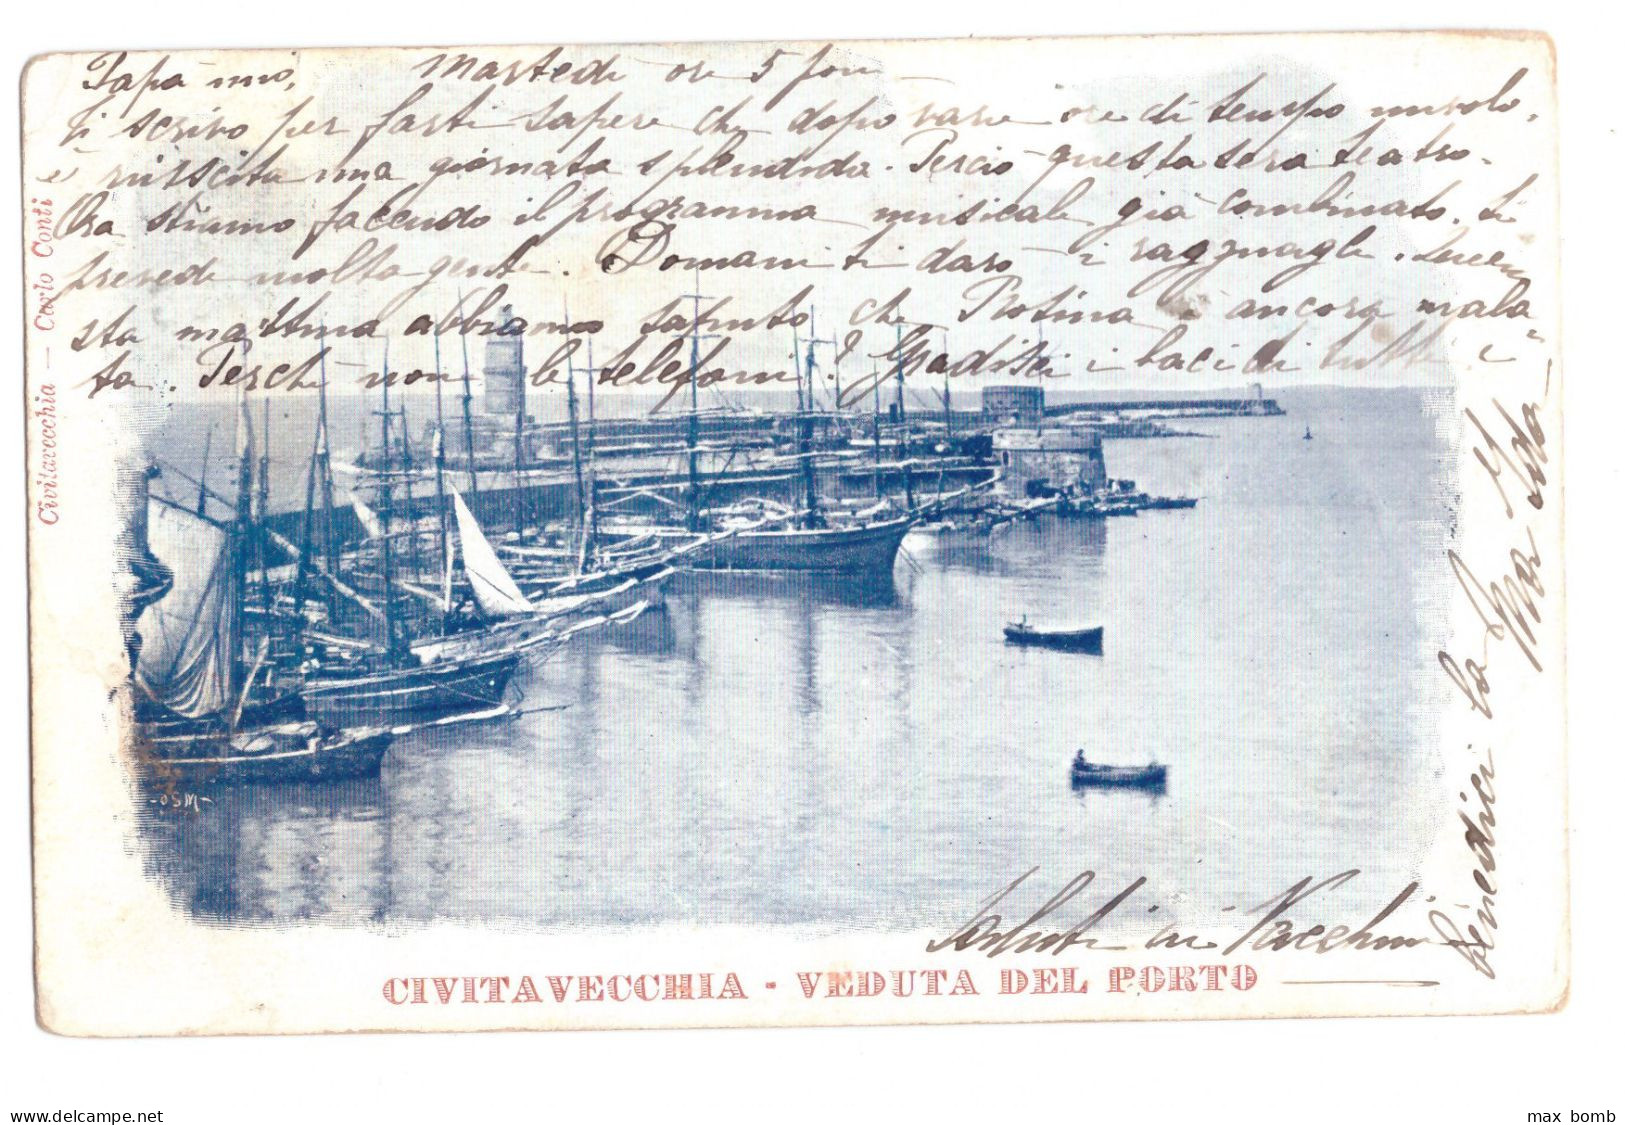 Papà mio, Martedì ore 5 pom
Ti scrivo per farti sapere che dopo varie ore di tempo nuvolo,
è riuscita una giornata splendida. Perciò questa sera teatro.
Ora stiamo facendo il programma musicale già combinato. Si
prevede molta gente. Domani ti darò i ragguagli.
sta mattina abbiamo saputo che è ancora mala=
ta. Perchè non le telefoni? Gradisci i baci di tutti e
benedici la
tua
Saluti ai Vacchini
Civitavecchia — Carlo Conti
-OSM-
CIVITAVECCHIA - VEDUTA DEL PORTO
www.delcampe.net
max_bomb